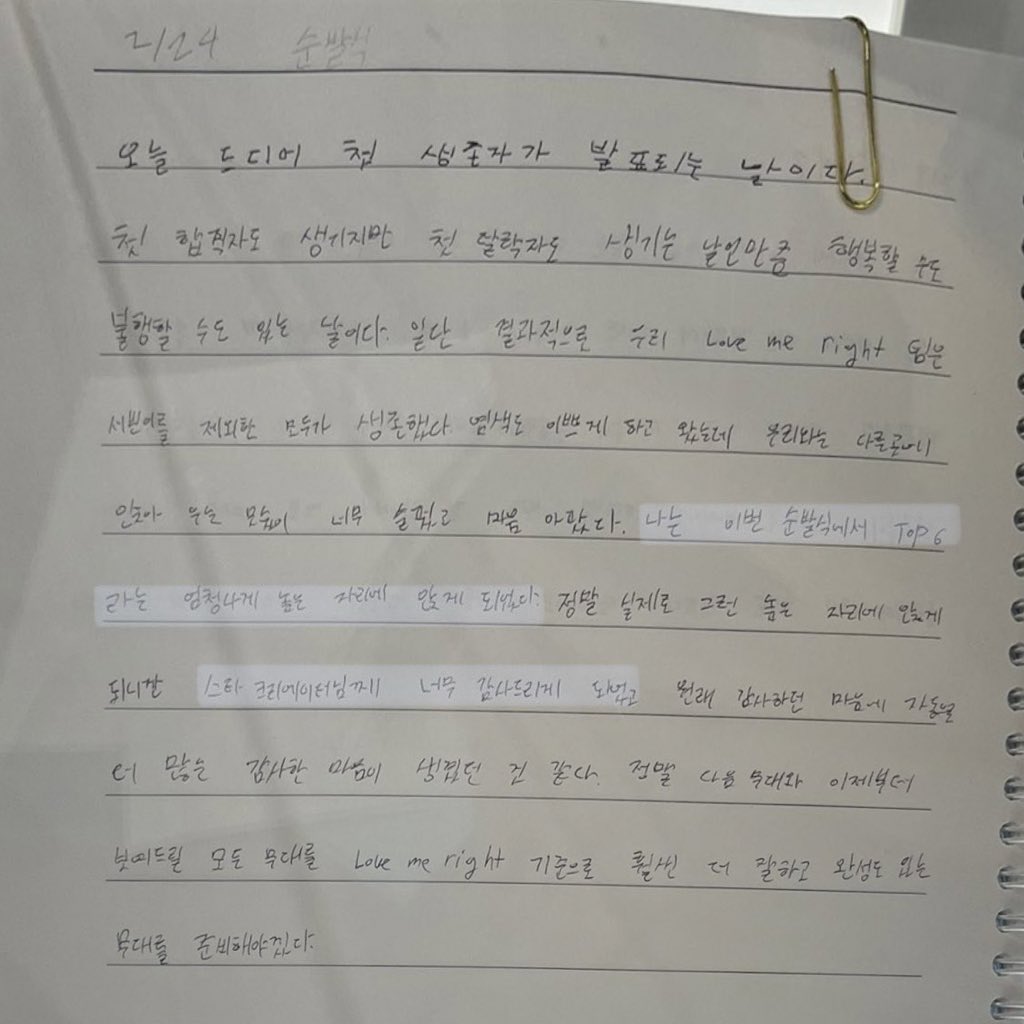 2/24 순발식
오늘 드디어 첫 생존자가 발표되는 날이다.
첫 합격자도 생기지만 첫 탈락자도 생기는 날인만큼 행복할 수도
불행할 수도 있는 날이다. 일단 결과적으로 우리 Love me right 팀은
세빈이를 제외한 모두가 생존했다. 염색도 이쁘게 하고 왔는데 우리와는 다른곳에
앉아 우는 모습이 너무 슬펐고 마음 아팠다. 나는 이번 순발식에서 TOP 6
라는 엄청나게 높은 자리에 앉게 되었다. 정말 실제로 그런 높은 자리에 앉게
되니깐 스타 크리에이터님께 너무 감사드리게 되었고 원래 감사하던 마음에
더 많은 감사한 마음이 생겼던 건 같다. 정말 다음 무대와 이제부터
보여드릴 모든 무대를 Love me right 기준으로 훨씬 더 잘하고 완성도 있는
무대를 준비해야겠다.